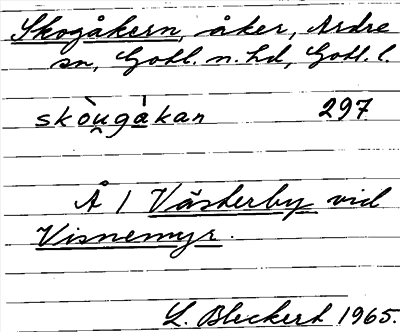 Skogåkern, åker, Ardre
sn, Gotl. n. hd, Gotl. l.
skòu̯gàkan 297
Å 1 Västerby vid
Visnemyr.
L. Bleckert 1965.